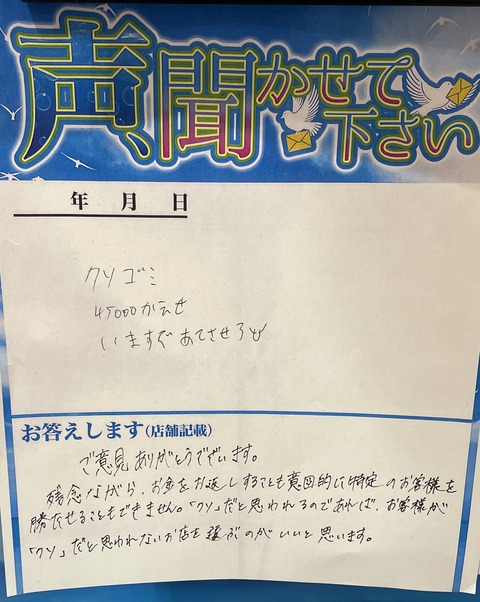 声、聞かせて下さい
年 月 日
クソゴミ
45000かえせ
いますぐあてさせろや
お答えします(店舗記載)
ご意見ありがとうございます。
残念ながら、お金をお返しすることも意図的に特定のお客様を
勝たせることもできません。「クソ」だと思われるのであれば、お客様が
「クソ」だと思われないお店を選ぶのがいいと思います。